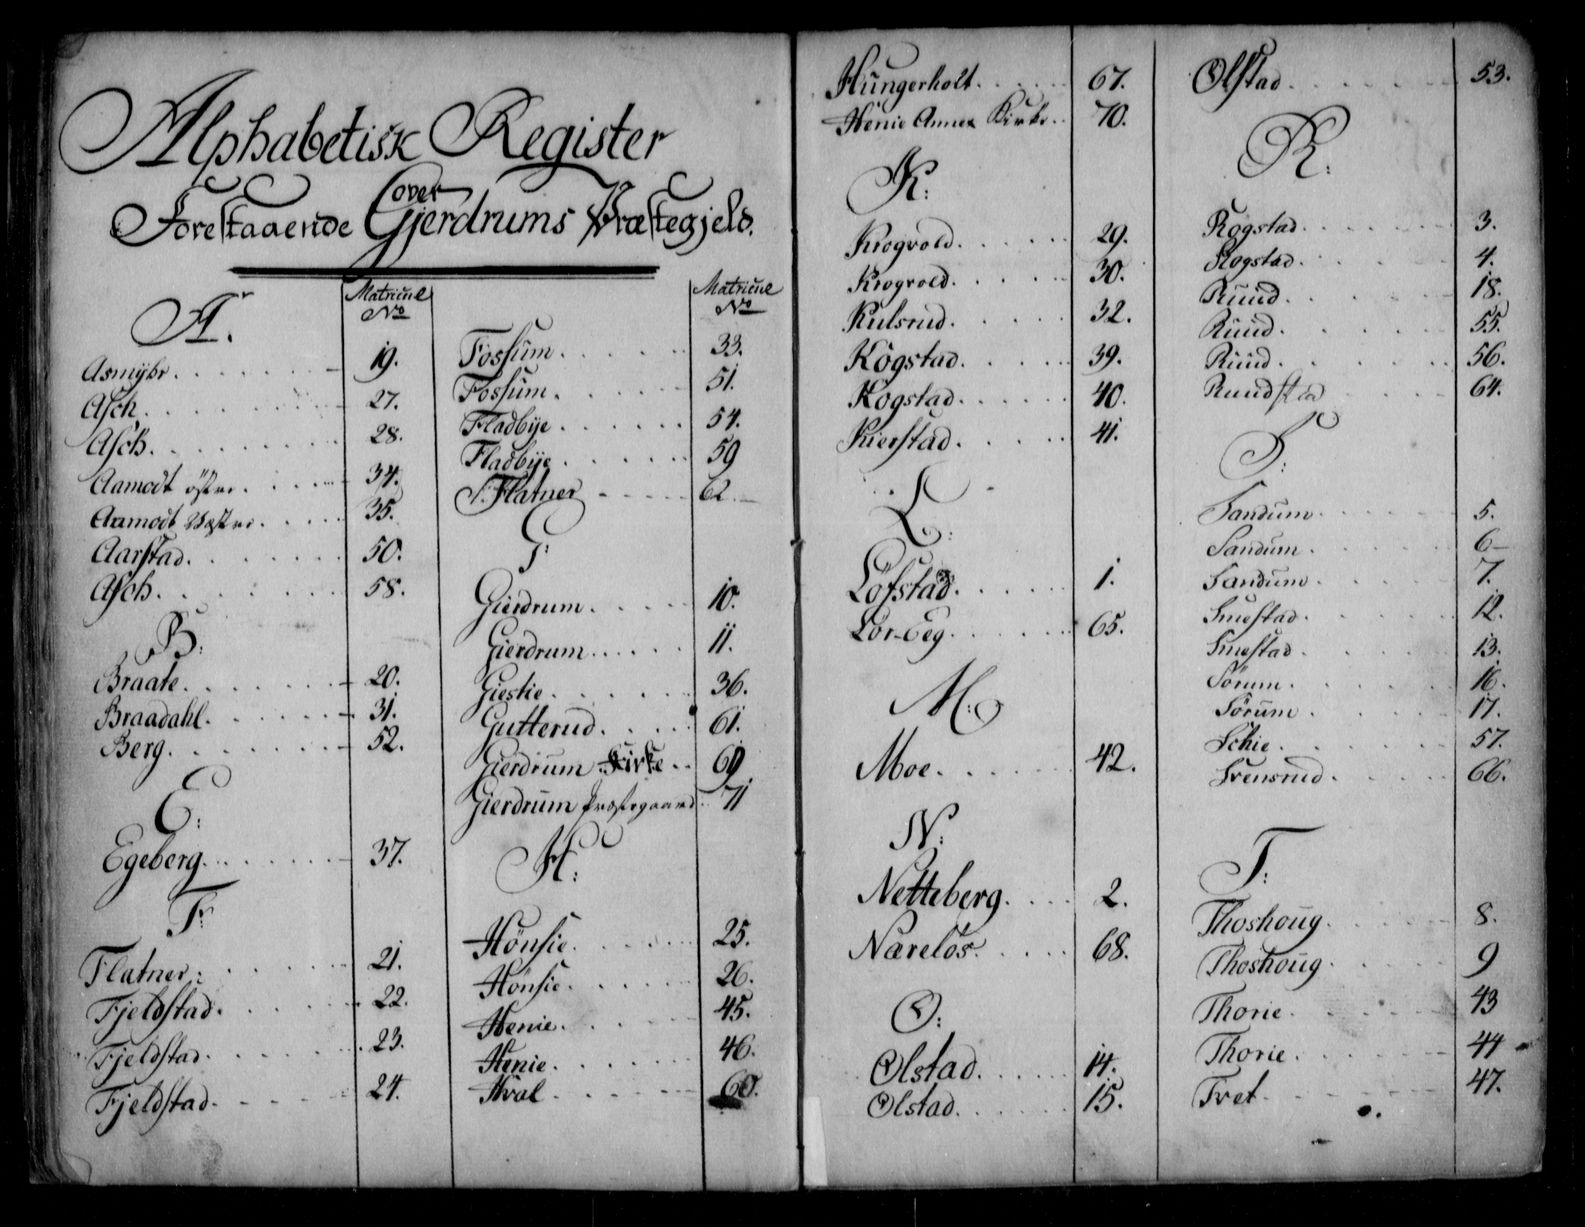 Alphabetisk Register
over
Forestaaende Gjerdrums Præstegjeld.
Matricul
No
A.
Asmyhr. 19.
Asch. 27.
Asch. 28.
Aamodt östre. 34.
Aamodt Væstre. 35.
Aarstad. 50.
Asch. 58.
B:
Braate. 20.
Braadahl. 31.
Berg. 52.
E:
Egeberg. 37.
F:
Flatner: 21.
Fjeldstad. 22.
Fjeldstad. 23.
Fjeldstad. 24.
Matricul
No
Fossum. 33.
Fossum. 51.
Fladbye. 54.
Fladbye. 59
S. Flatner 62.
G:
Gierdrum. 10.
Gierdrum. 11.
Giestie. 36.
Gutterud. 61.
Gierdrum Kirke. 69.
Gierdrum Præstegaard. 71
H:
Hönsie. 25.
Hönsie. 26.
Henie. 45.
Henie. 46.
Hval 60.
Hungerholt. 67.
Henie Annex Kirke. 70.
K:
Krogvold. 29.
Krogvold. 30.
Kulsrud. 32.
Kogstad. 39.
Kogstad. 40.
Kierstad. 41.
L:
Löfstad. 1.
Lör-Eeg. 65.
M:
Moe. 42.
N:
Netteberg. 2.
Næreløs. 68.
O:
Olstad. 14.
Olstad. 15.
Olstad. 53.
R:
Rogstad. 3.
Rogstad. 4.
Ruud. 18.
Ruud. 55.
Ruud. 56.
Ruudstad 64.
S:
Sandum. 5.
Sandum. 6
Sandum. 7.
Smestad. 12.
Smestad. 13.
Sørum. 16.
Sørum. 17.
Schie. 57.
Svensrud. 66.
T:
Thoshoug. 8.
Thoshoug. 9
Thorie. 43
Thorie. 44
Tvet. 47.